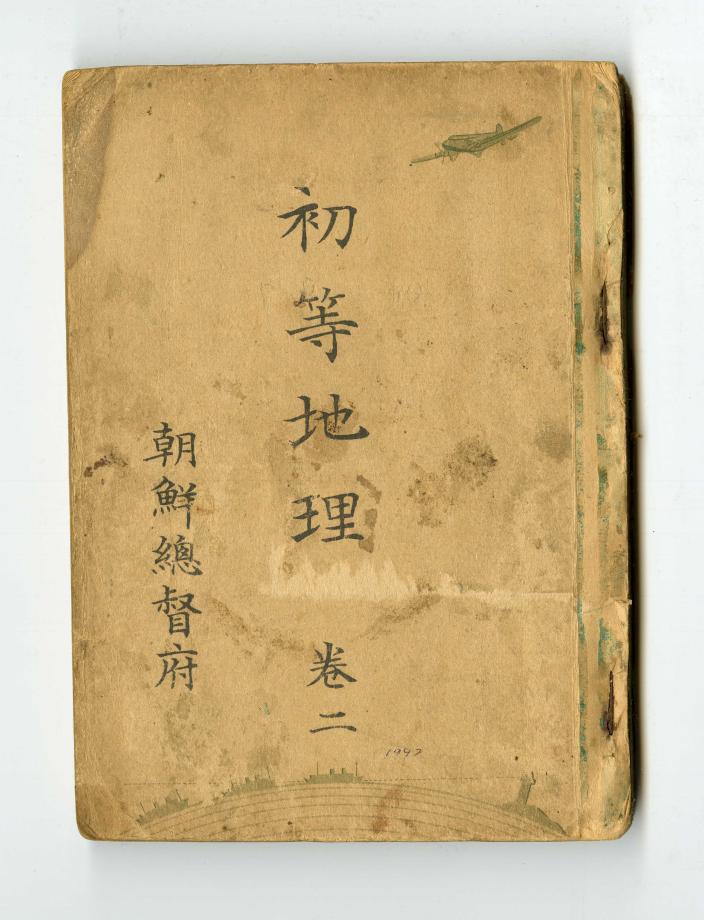 初等地理 卷二
朝鮮總督府
1942